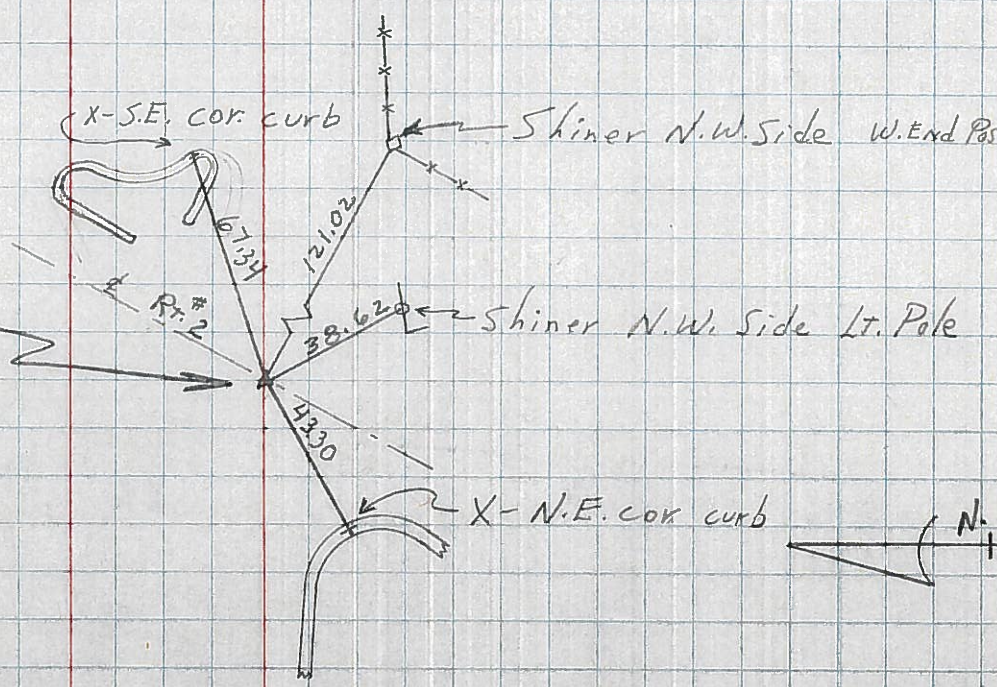 X-S.E. cor. curb
Shiner N.W. Side W. End Pos
67.34
121.02
℄ Rt. # 2
38.62
Shiner N.W. Side Lt. Pole
43.30
X- N.E. cor. curb
N.